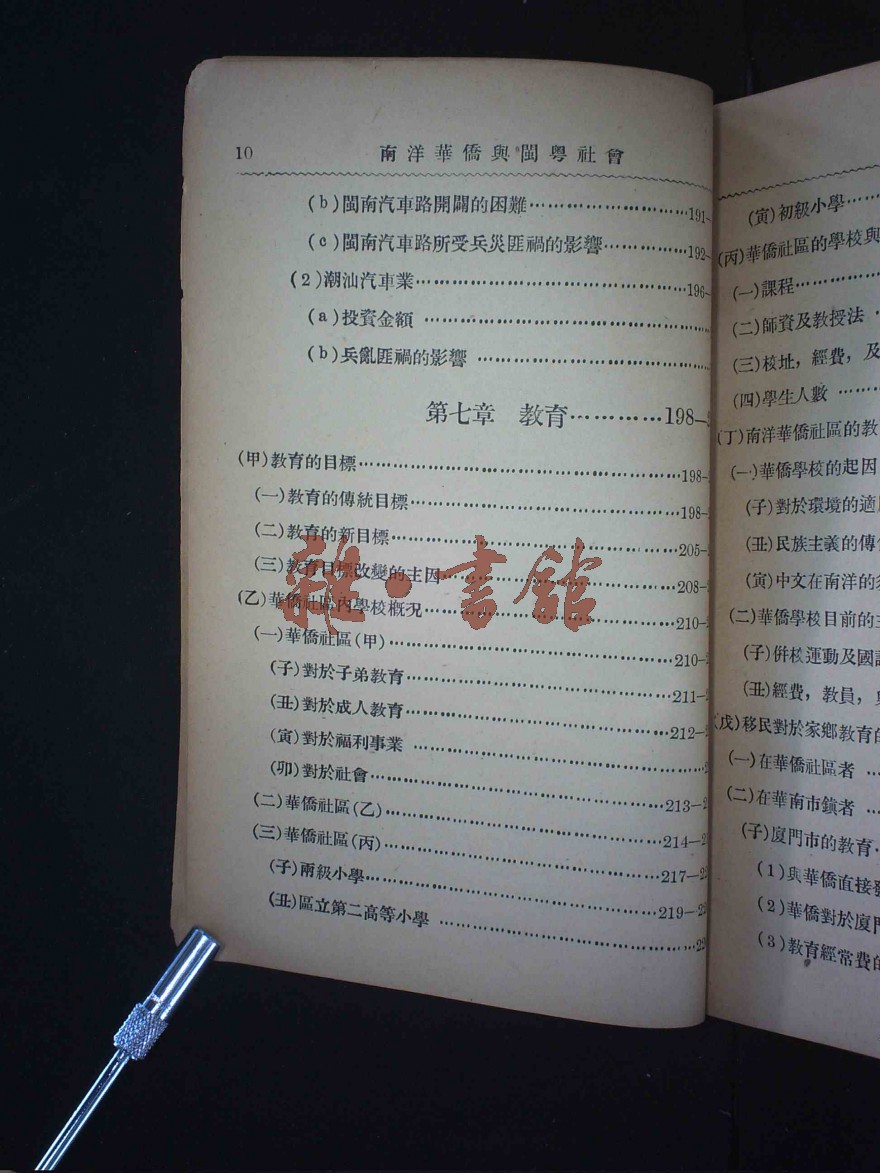 10　南洋華僑與閩粵社會
(b)閩南汽車路開闢的困難……………………191—
(c)閩南汽車路所受兵災匪禍的影響…………192—
(2)潮汕汽車業……………………………………196—
(a)投資金額……………………………………
(b)兵亂匪禍的影響……………………………
第七章　教育…………198—
(甲)教育的目標……………………………………198—
(一)教育的傳統目標………………………………198—
(二)教育的新目標…………………………………205—
(三)教育目標改變的主因…………………………208—
(乙)華僑社區內學校概況…………………………210—
(一)華僑社區(甲)…………………………………210—
(子)對於子弟教育………………………………211—
(丑)對於成人教育………………………………212—
(寅)對於福利事業………………………………
(卯)對於社會……………………………………213—
(二)華僑社區(乙)…………………………………214—
(三)華僑社區(丙)…………………………………217—
(子)兩級小學……………………………………219—
(丑)區立第二高等小學…………………………
雜·書館
(寅)初級小學……
(丙)華僑社區的學校與
(一)課程……………
(二)師資及教授法…
(三)校址，經費，及
(四)學生人數………
(丁)南洋華僑社區的教
(一)華僑學校的起因
(子)對於環境的適
(丑)民族主義的傳
(寅)中文在南洋的
(二)華僑學校目前的
(子)併校運動及國
(丑)經費，教員，
(戊)移民對於家鄉教育
(一)在華僑社區者…
(二)在華南市鎮者…
(子)廈門市的教育…
(1)與華僑直接
(2)華僑對於廈
(3)教育經常費的